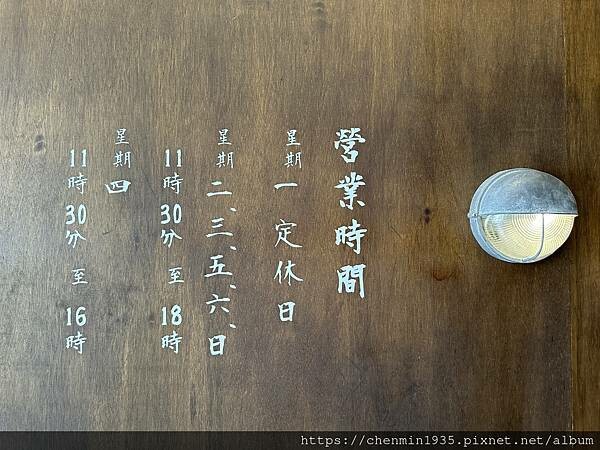 營業時間
星期一定休日
星期二、三、五、六、日
11時30分 至 18時
星期四
11時30分 至 16時
https://chenmin1935.pixnet.net/album